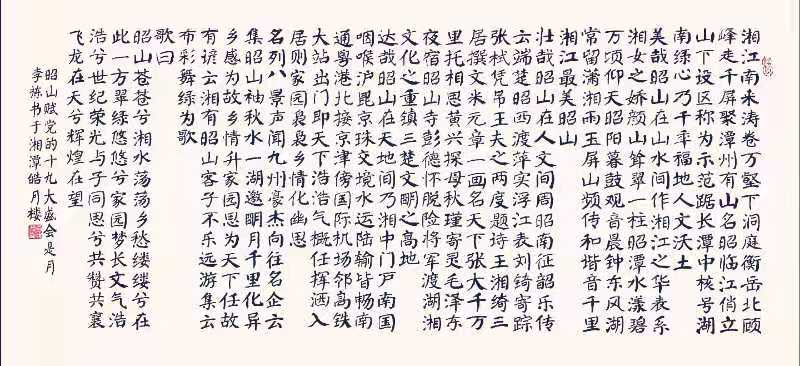 湘江南来涛卷万壑下洞庭衡岳北顾
峰走千屏聚潭州有山名昭临江俏立
山下设区称为示范踞长潭中核号湖
南绿心乃千年福地人文沃土
美哉昭山在山水间作湘江之华表系
湘女之娇颜山耸翠一柱昭潭水漾碧
万顷仰天昭阳暮鼓观音晨钟东风湖
常留潇湘雨玉屏山频传和谐音千里
湘江最美昭山
壮哉昭山在人文间周昭南征韶乐传
云端楚昭西渡萍实浮江表刘锜寄踪
张栻凭吊王夫之两度题诗王湘绮三
居撰文米元章一画名天下张大千万
里托相思黄兴探母秋瑾寄灵毛泽东
夜宿昭山寺彭德怀脱险将军渡湖湘
文化之重镇三楚文明之高地
达哉昭山在天地间乃湘中门户南国
咽喉沪昆京珠交境水运陆输皆畅南
通粤港北接京津傍国际机场邻高铁
大站出门即天下浩浩气概任挥洒入
居则家园袅袅乡情化幽思
名列八景声闻九州豪杰向往名企云
集昭山袖秋水一湖邀明月千里化异
乡感为故乡情升家园思为天下任故
有谚云湘有昭山客子不乐远游集云
布彩舞绿为歌
歌曰
昭山苍苍兮湘水荡荡乡愁缕缕兮在
此一方翠绿悠悠兮家园梦长文气浩
浩兮世纪荣光与子同思兮共赞共襄
飞龙在天兮辉煌在望
昭山赋党的十九大盛会是月
李栋书于湘潭皓月楼